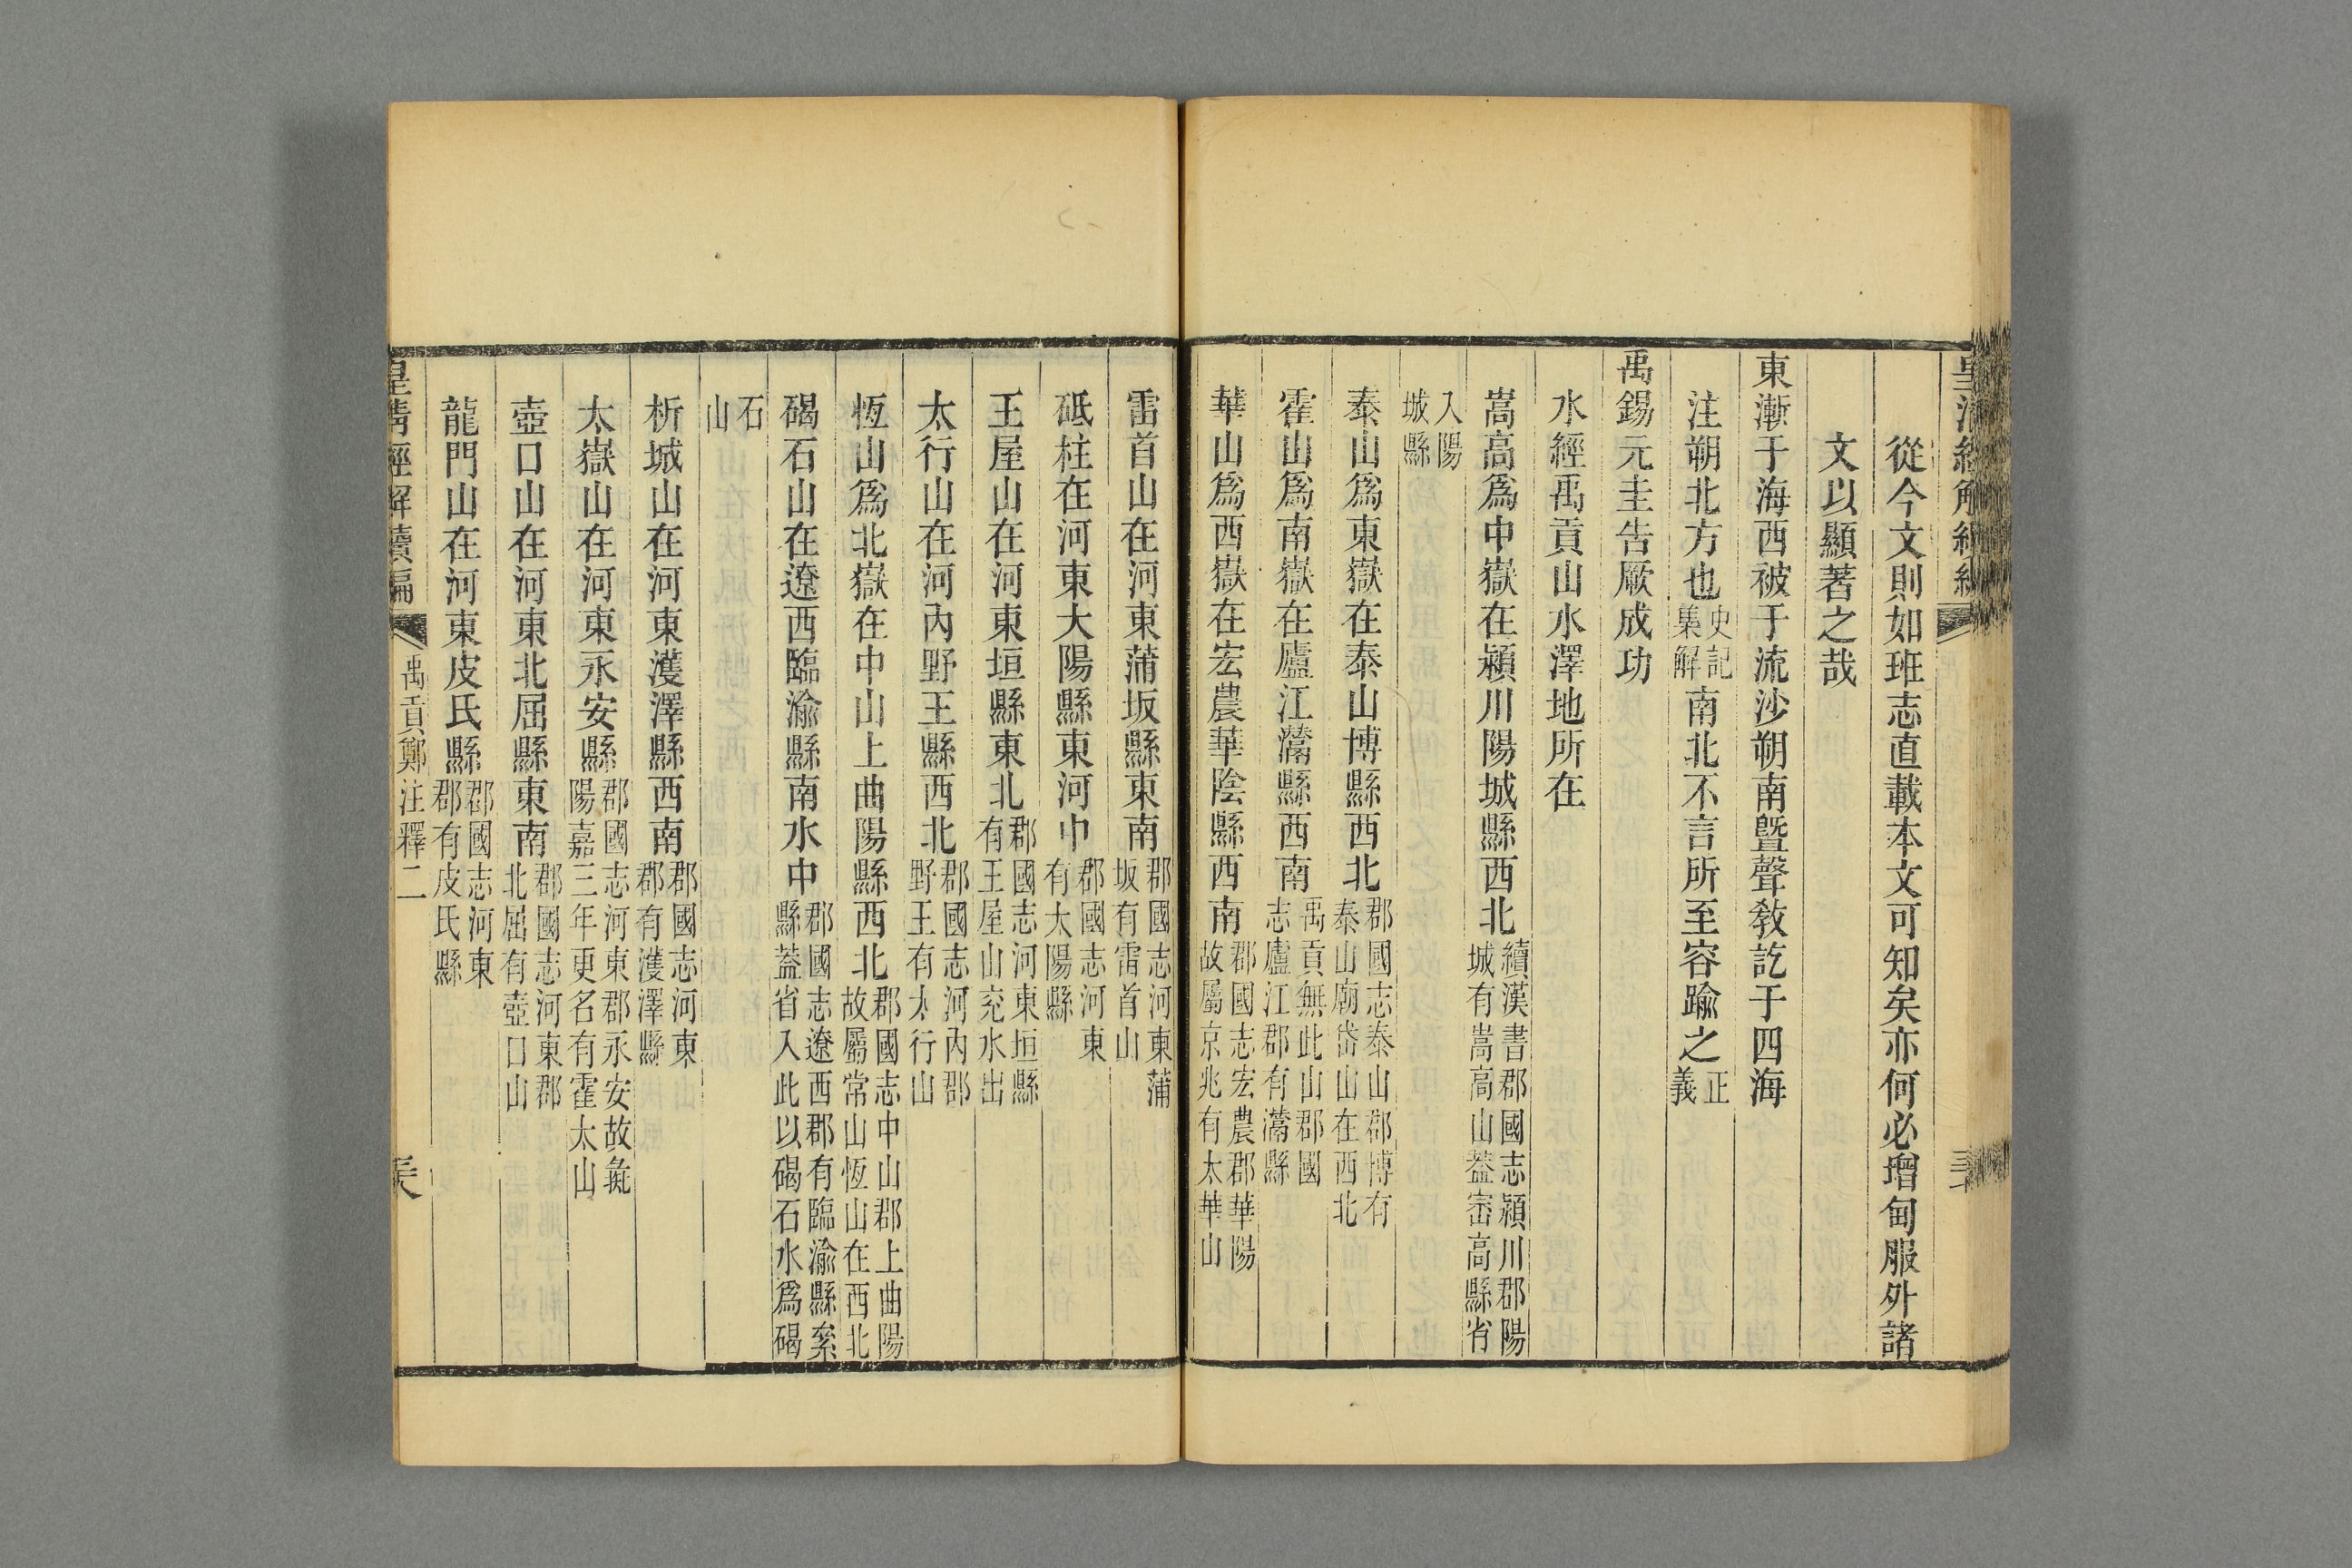 從今文則如班志直載本文可知矣亦何必增甸服外諸
文以顯著之哉
東漸于海西被于流沙朔南曁聲敎訖于四海
注朔北方也史記集解南北不言所至容踰之正義
禹錫元圭告厥成功
水經禹貢山水澤地所在
嵩高爲中嶽在潁川陽城縣西北續漢書郡國志潁川郡陽城有嵩高山葢崈高縣省
入陽城縣
泰山爲東嶽在泰山博縣西北郡國志泰山郡博有泰山廟岱山在西北
霍山爲南嶽在廬江灊縣西南禹貢無此山郡國志廬江郡有灊縣
華山爲西嶽在宏農華陰縣西南郡國志宏農郡華陽故屬京兆有太華山
雷首山在河東蒲坂縣東南郡國志河東蒲坂有雷首山
砥柱在河東大陽縣東河中郡國志河東有大陽縣
王屋山在河東垣縣東北郡國志河東垣縣有王屋山兗水出
太行山在河內野王縣西北郡國志河內郡野王有太行山
恆山爲北嶽在中山上曲陽縣西北郡國志中山郡上曲陽故屬常山恆山在西北
碣石山在遼西臨渝縣南水中郡國志遼西郡有臨渝縣絫縣葢省入此以碣石水爲碣
石山
析城山在河東濩澤縣西南郡國志河東郡有濩澤縣
太嶽山在河東永安縣郡國志河東郡永安故彘陽嘉三年更名有霍太山
壺口山在河東北屈縣東南郡國志河東郡北屈有壺口山
龍門山在河東皮氏縣郡國志河東郡有皮氏縣
皇淸經解續編 禹貢鄭注釋二